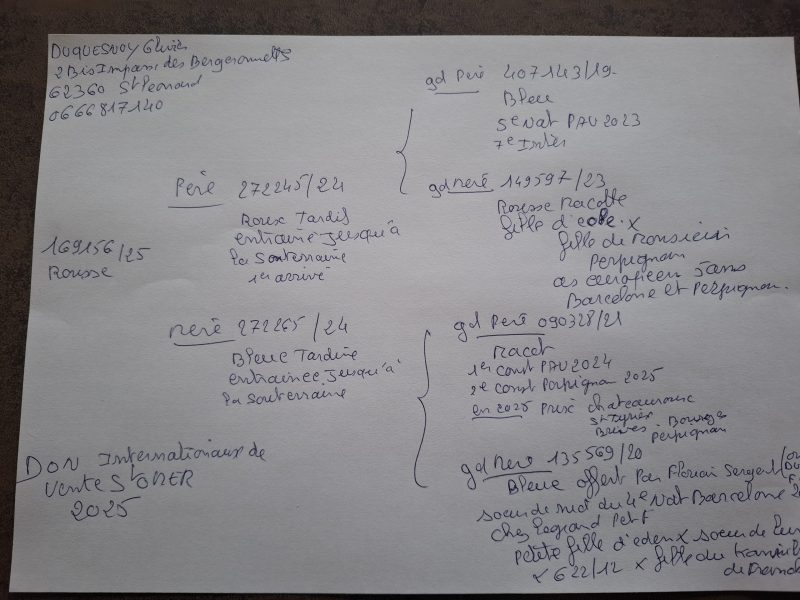 DUQUESNOY Olivier
2 Bis Impasse des Bergeronnettes
62360 St Leonard
0666817140
169156/25
Rousse
Père 272245/24
Roux Tardif
entrainé jusqu'à
la Souterraine
1er arrivé
mère 272265/24
Bleue Tardive
entrainée jusqu'à
la Souterraine
gd Père 407143/19
Bleu
5e Nat PAU 2023
7e Inter
gd mère 149597/23
Rousse macotte
fille d'eole x
fille de Monsieur
Perpignan
as européen 5 ans
Barcelone et Perpignan.
gd Père 090328/21
macot
1er const PAU 2024
2e const Perpignan 2025
en 2025 prix chateauroux
St Yrieix
Brives - Bourges
Perpignan
gd mère 135569/20
Bleue offert par Florian Sergent
soeur de nid du 4e Nat Barcelone
chez Legrand Petit
Petite fille d'eden x soeur de
x 622/12 x fille du
DON Internationaux de
Vente St OMER
2025